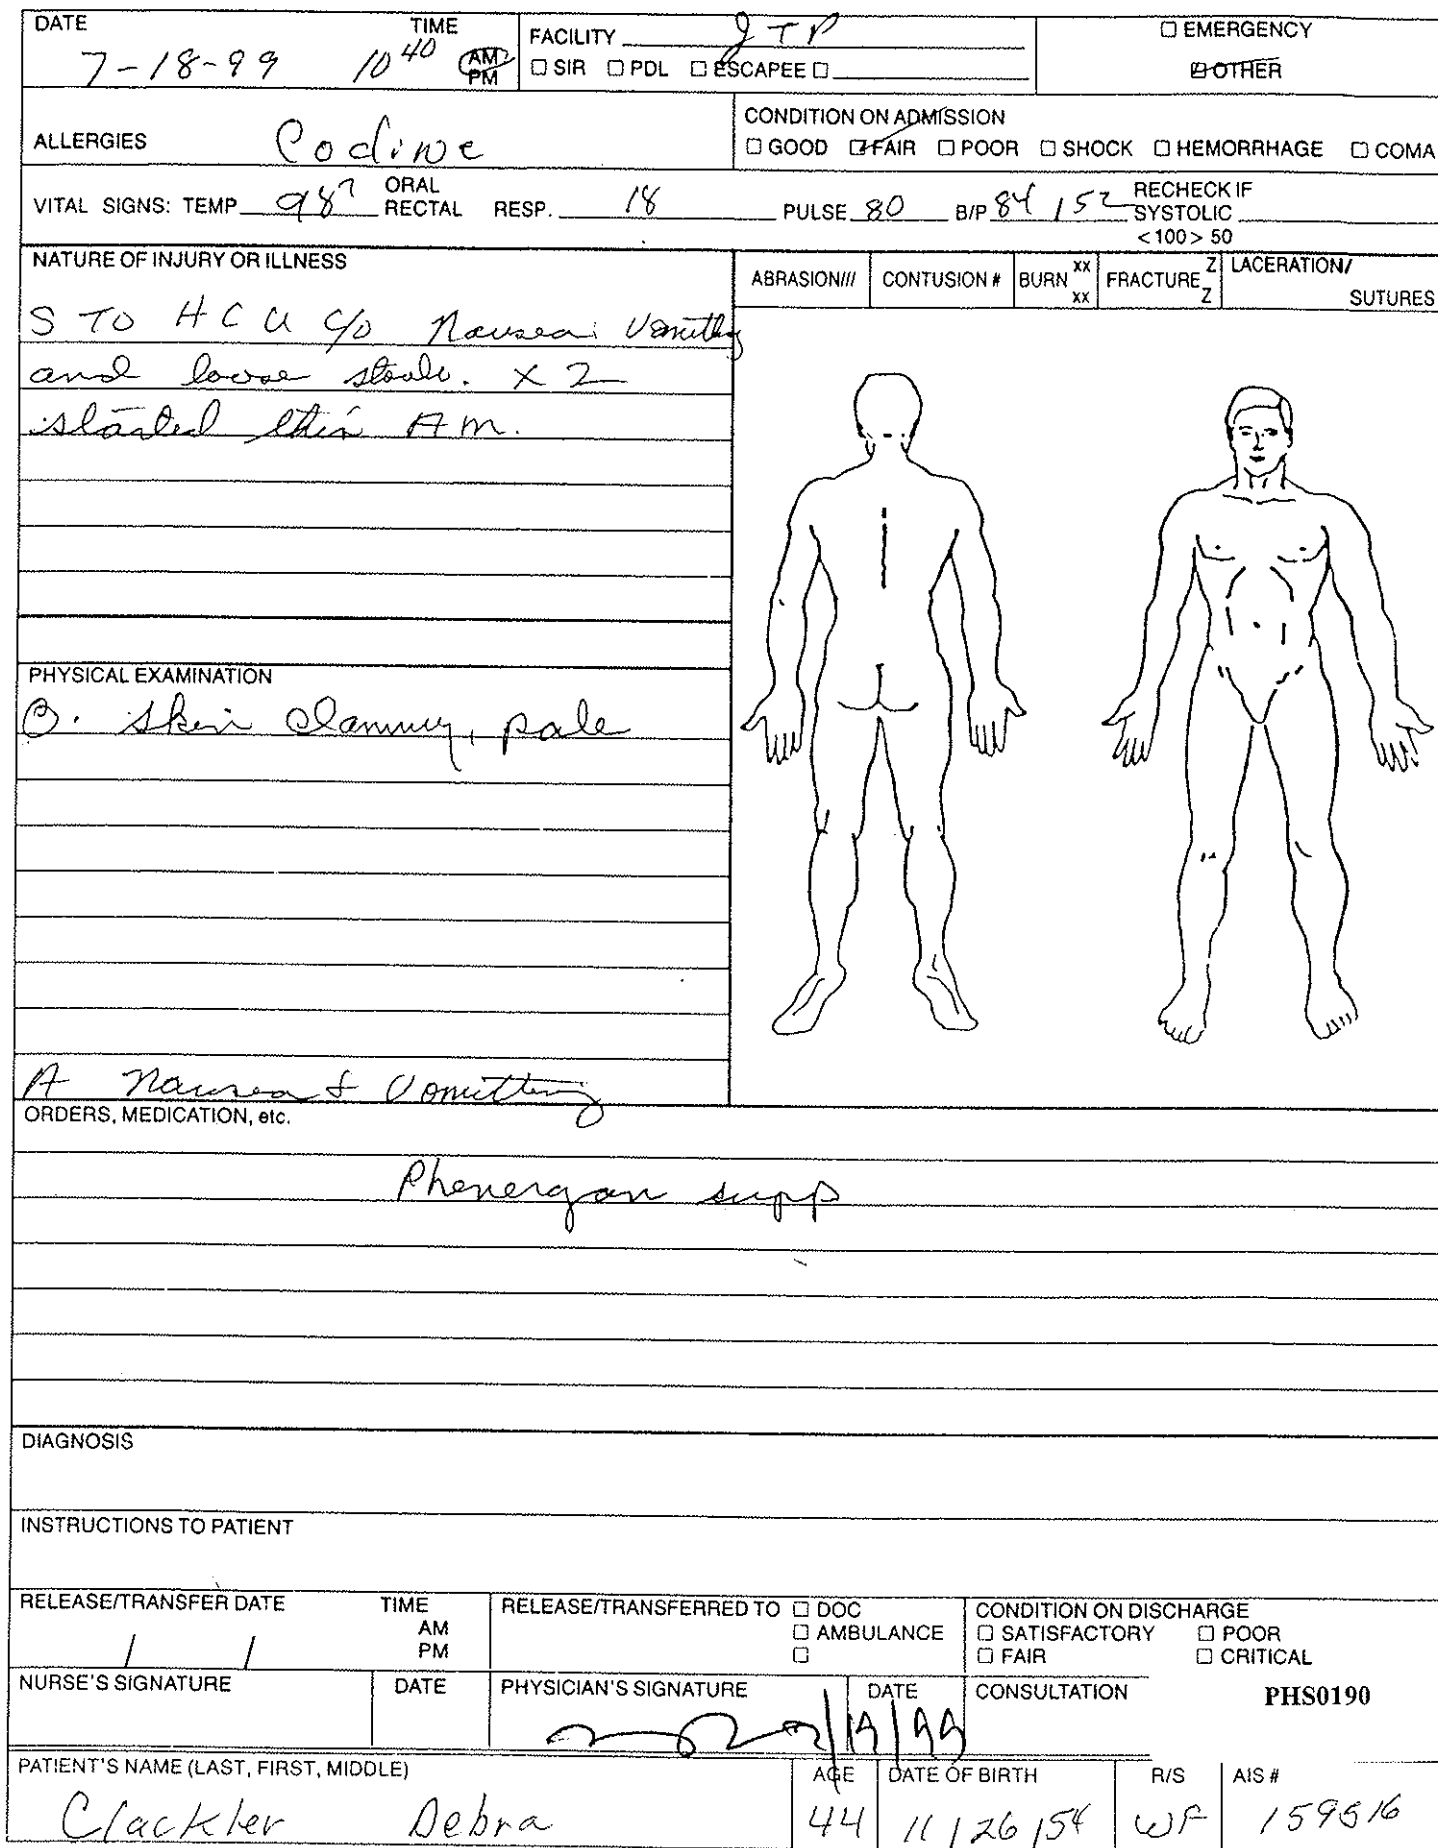 DATE TIME
7-18-99 10 40 AM PM
FACILITY JTP
☐ SIR ☐ PDL ☐ ESCAPEE ☐
☐ EMERGENCY
☑ OTHER
ALLERGIES Codine
CONDITION ON ADMISSION
☐ GOOD ☑ FAIR ☐ POOR ☐ SHOCK ☐ HEMORRHAGE ☐ COMA
VITAL SIGNS: TEMP 98 ORAL RECTAL RESP. 18 PULSE 80 B/P 84 / 52 RECHECK IF SYSTOLIC <100> 50
NATURE OF INJURY OR ILLNESS
ABRASION/// CONTUSION # BURN xx xx FRACTURE Z Z LACERATION/ SUTURES
S TO HCU c/o Nausea Vomitting
and loose stools. x 2
started this AM.
PHYSICAL EXAMINATION
O. Skin clammy, pale
A Nausea & Vomitting
ORDERS, MEDICATION, etc.
Phenergan supp
DIAGNOSIS
INSTRUCTIONS TO PATIENT
RELEASE/TRANSFER DATE TIME AM PM
/ /
RELEASE/TRANSFERRED TO ☐ DOC
☐ AMBULANCE
☐
CONDITION ON DISCHARGE
☐ SATISFACTORY ☐ POOR
☐ FAIR ☐ CRITICAL
NURSE'S SIGNATURE DATE PHYSICIAN'S SIGNATURE DATE CONSULTATION PHS0190
/19/99
PATIENT'S NAME (LAST, FIRST, MIDDLE) AGE DATE OF BIRTH R/S AIS #
Clackler Debra 44 11/26/54 WF 159516